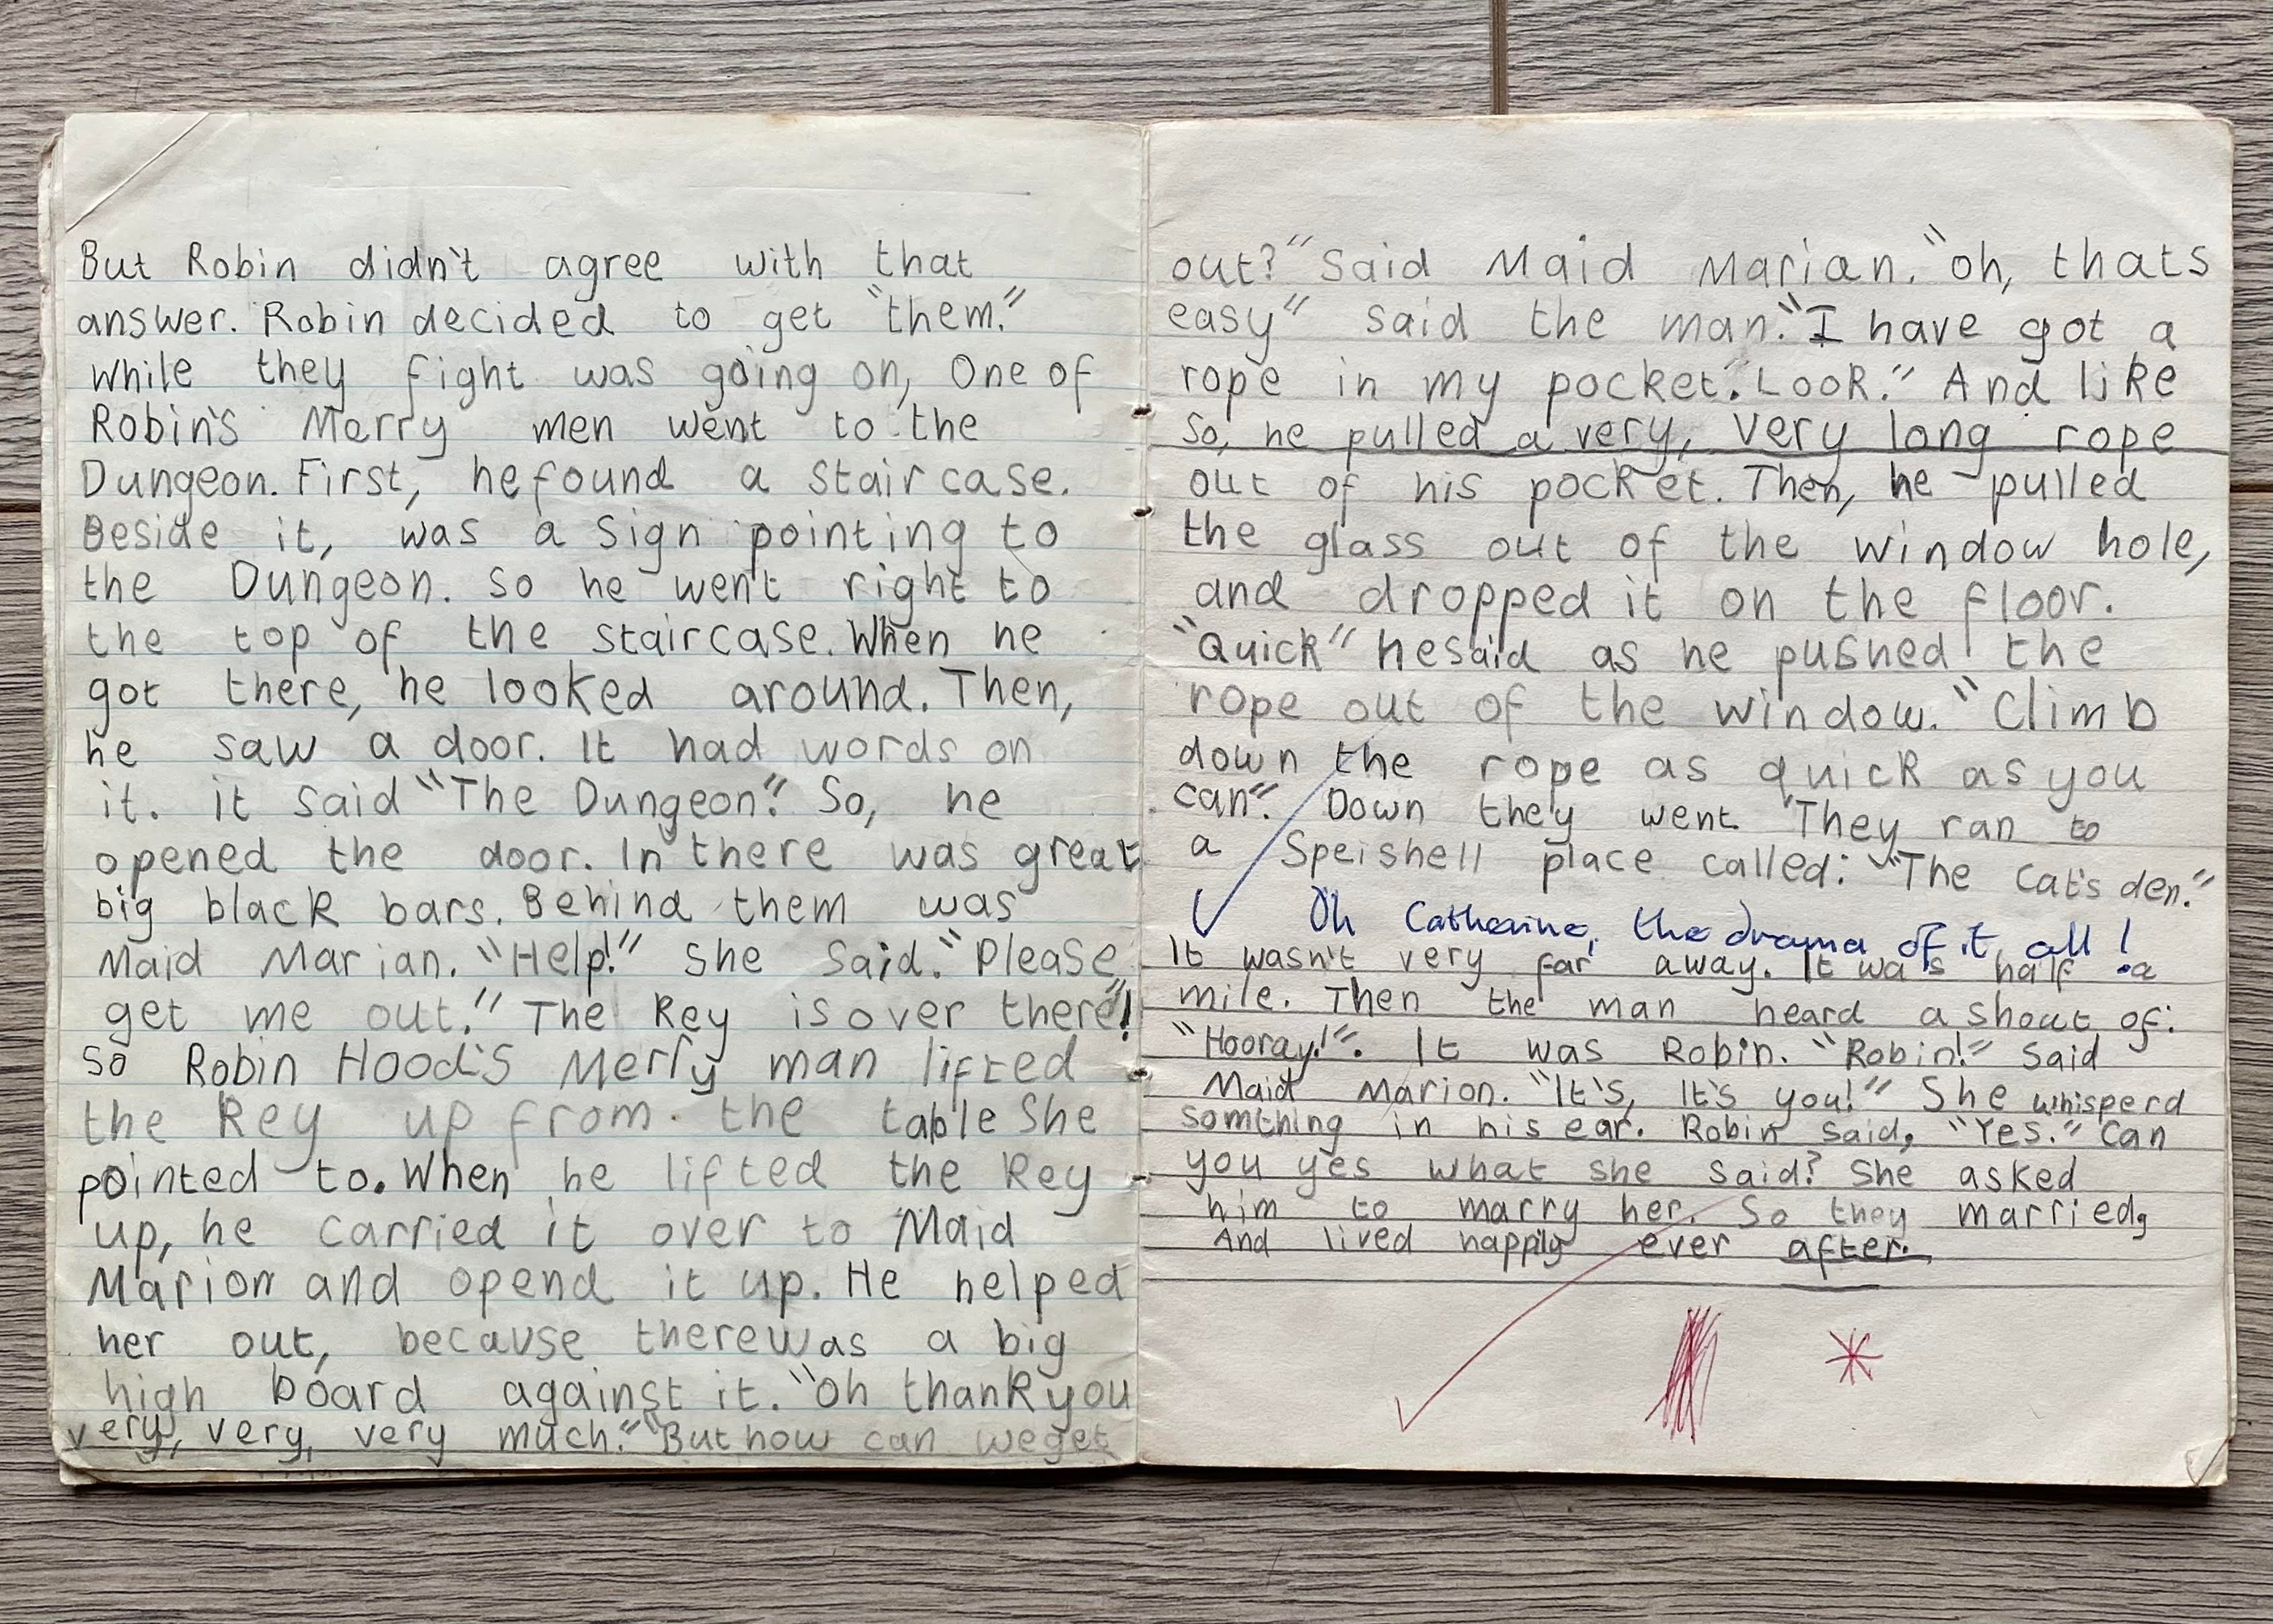 But Robin didn't agree with that
answer. Robin decided to get "them."
while they fight was going on, One of
Robin's Merry men went to the
Dungeon. First, he found a staircase.
Beside it, was a sign pointing to
the Dungeon. So he went right to
the top of the staircase. When he
got there, he looked around. Then,
he saw a door. It had words on
it. it said "The Dungeon." So, he
opened the door. In there was great
big black bars. Behind them was
Maid Marian. "Help!" She said. "Please
get me out." The Key is over there"!
So Robin Hood's Merry man lifted
the Key up from the table She
pointed to. When he lifted the Key
up, he carried it over to Maid
Marion and opend it up. He helped
her out, because there was a big
high board against it. "Oh thank you
very, very, very much." "But how can we get
out?" Said Maid Marian. "oh, thats
easy" said the man. "I have got a
rope in my pocket. Look." And like
So, he pulled a very, very long rope
out of his pocket. Then, he pulled
the glass out of the window hole,
and dropped it on the floor.
"Quick" he said as he pushed the
rope out of the window. "Climb
down the rope as quick as you
can". Down they went. They ran to
a Speishell place called: "The Cat's den."
Oh Catherine, the drama of it all!
It wasn't very far away. It was half a
mile. Then the man heard a shout of:
"Hooray!". It was Robin. "Robin!" Said
Maid Marion. "It's, It's you!" She whisperd
somthing in his ear. Robin said, "Yes." Can
you yes what she said? She asked
him to marry her. So they married,
And lived happily ever after.